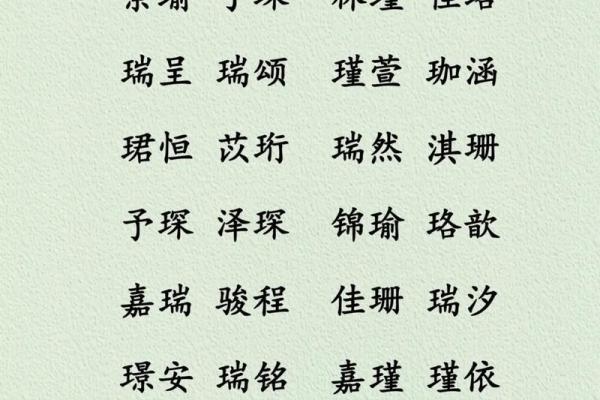 瑞呈 瑞颂 瑾萱 珈涵
珺恒 苡珩 瑞然 淇珊
予琛 泽琛 锦瑜 珞歆
嘉瑞 骏程 佳珊 瑞汐
璟安 瑞铭 嘉瑾 瑾依